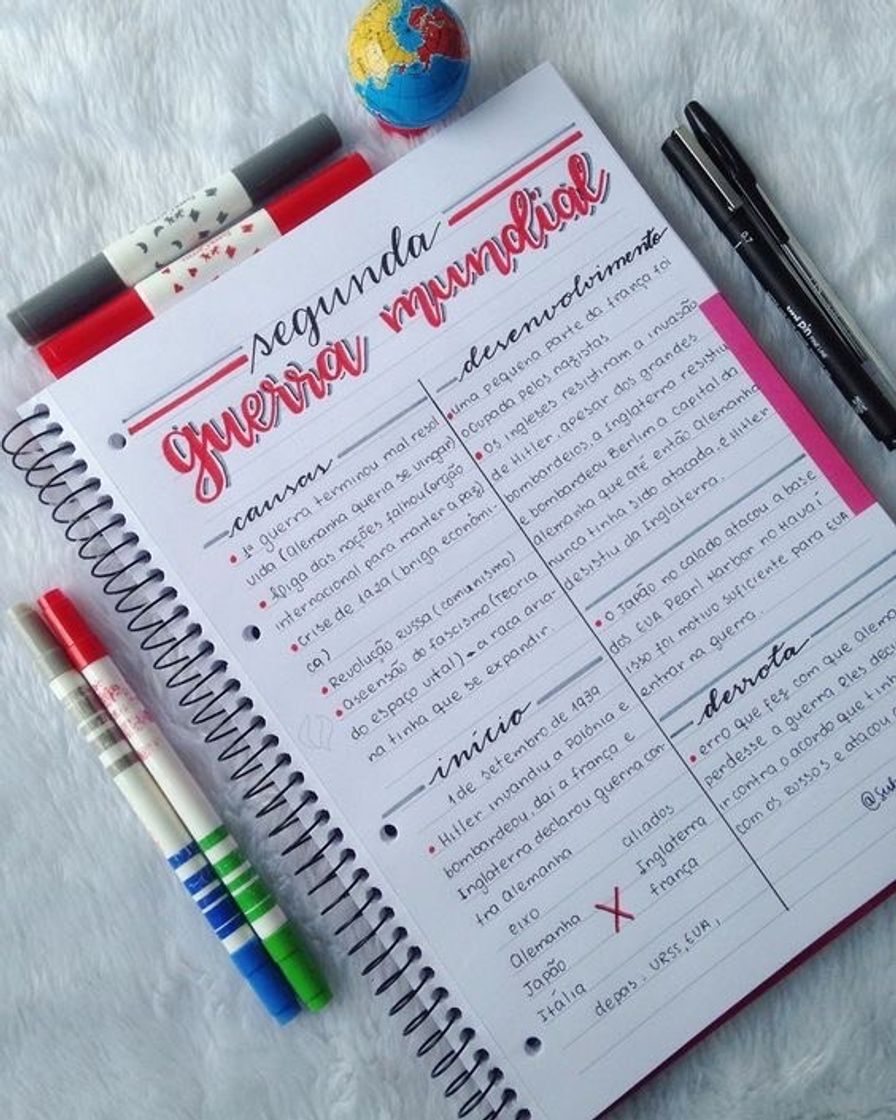 segunda
guerra mundial
causas
• 1ª guerra terminou mal resol
vida (Alemanha queria se vingar)
• A liga das nações falhou (orgão
internacional para manter a paz)
• crise de 1929 (briga econômi-
ca)
• Revolução Russa (comunismo)
• Ascensão do fascismo (Teoria
do espaço vital) → a raça aria-
na tinha que se expandir.
início
1 de setembro de 1939
• Hitler invandiu a Polônia e
bombardeou, dai a frança e
Inglaterra declarou guerra con-
tra Alemanha
eixo
aliados
Alemanha X Inglaterra
Japão
frança
Itália
depois: URSS, EUA,
desenvolvimento
• uma pequena parte da frança foi
ocupada pelos nazistas
• Os ingleses resistiram a invasão
de Hitler, apesar dos grandes
bombardeios, a Inglaterra resistiu
e bombardeou Berlim a capital da
Alemanha que até então Alemanha
nunca tinha sido atacada, e Hitler
desistiu da Inglaterra.
• O Japão no calado atacou a base
dos EUA Pearl Harbor no Havaí
isso foi motivo suficiente para EUA
entrar na guerra.
derrota
• erro que fez com que Alem
perdesse a guerra Eles deci
ir contra o acordo que tin
com os Russos e atacou